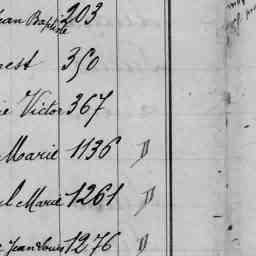 ean Baptiste 203
nest 350
ie Victor 367
Marie 1136 "
l Marie 1261 "
Jean Louis 1276 "